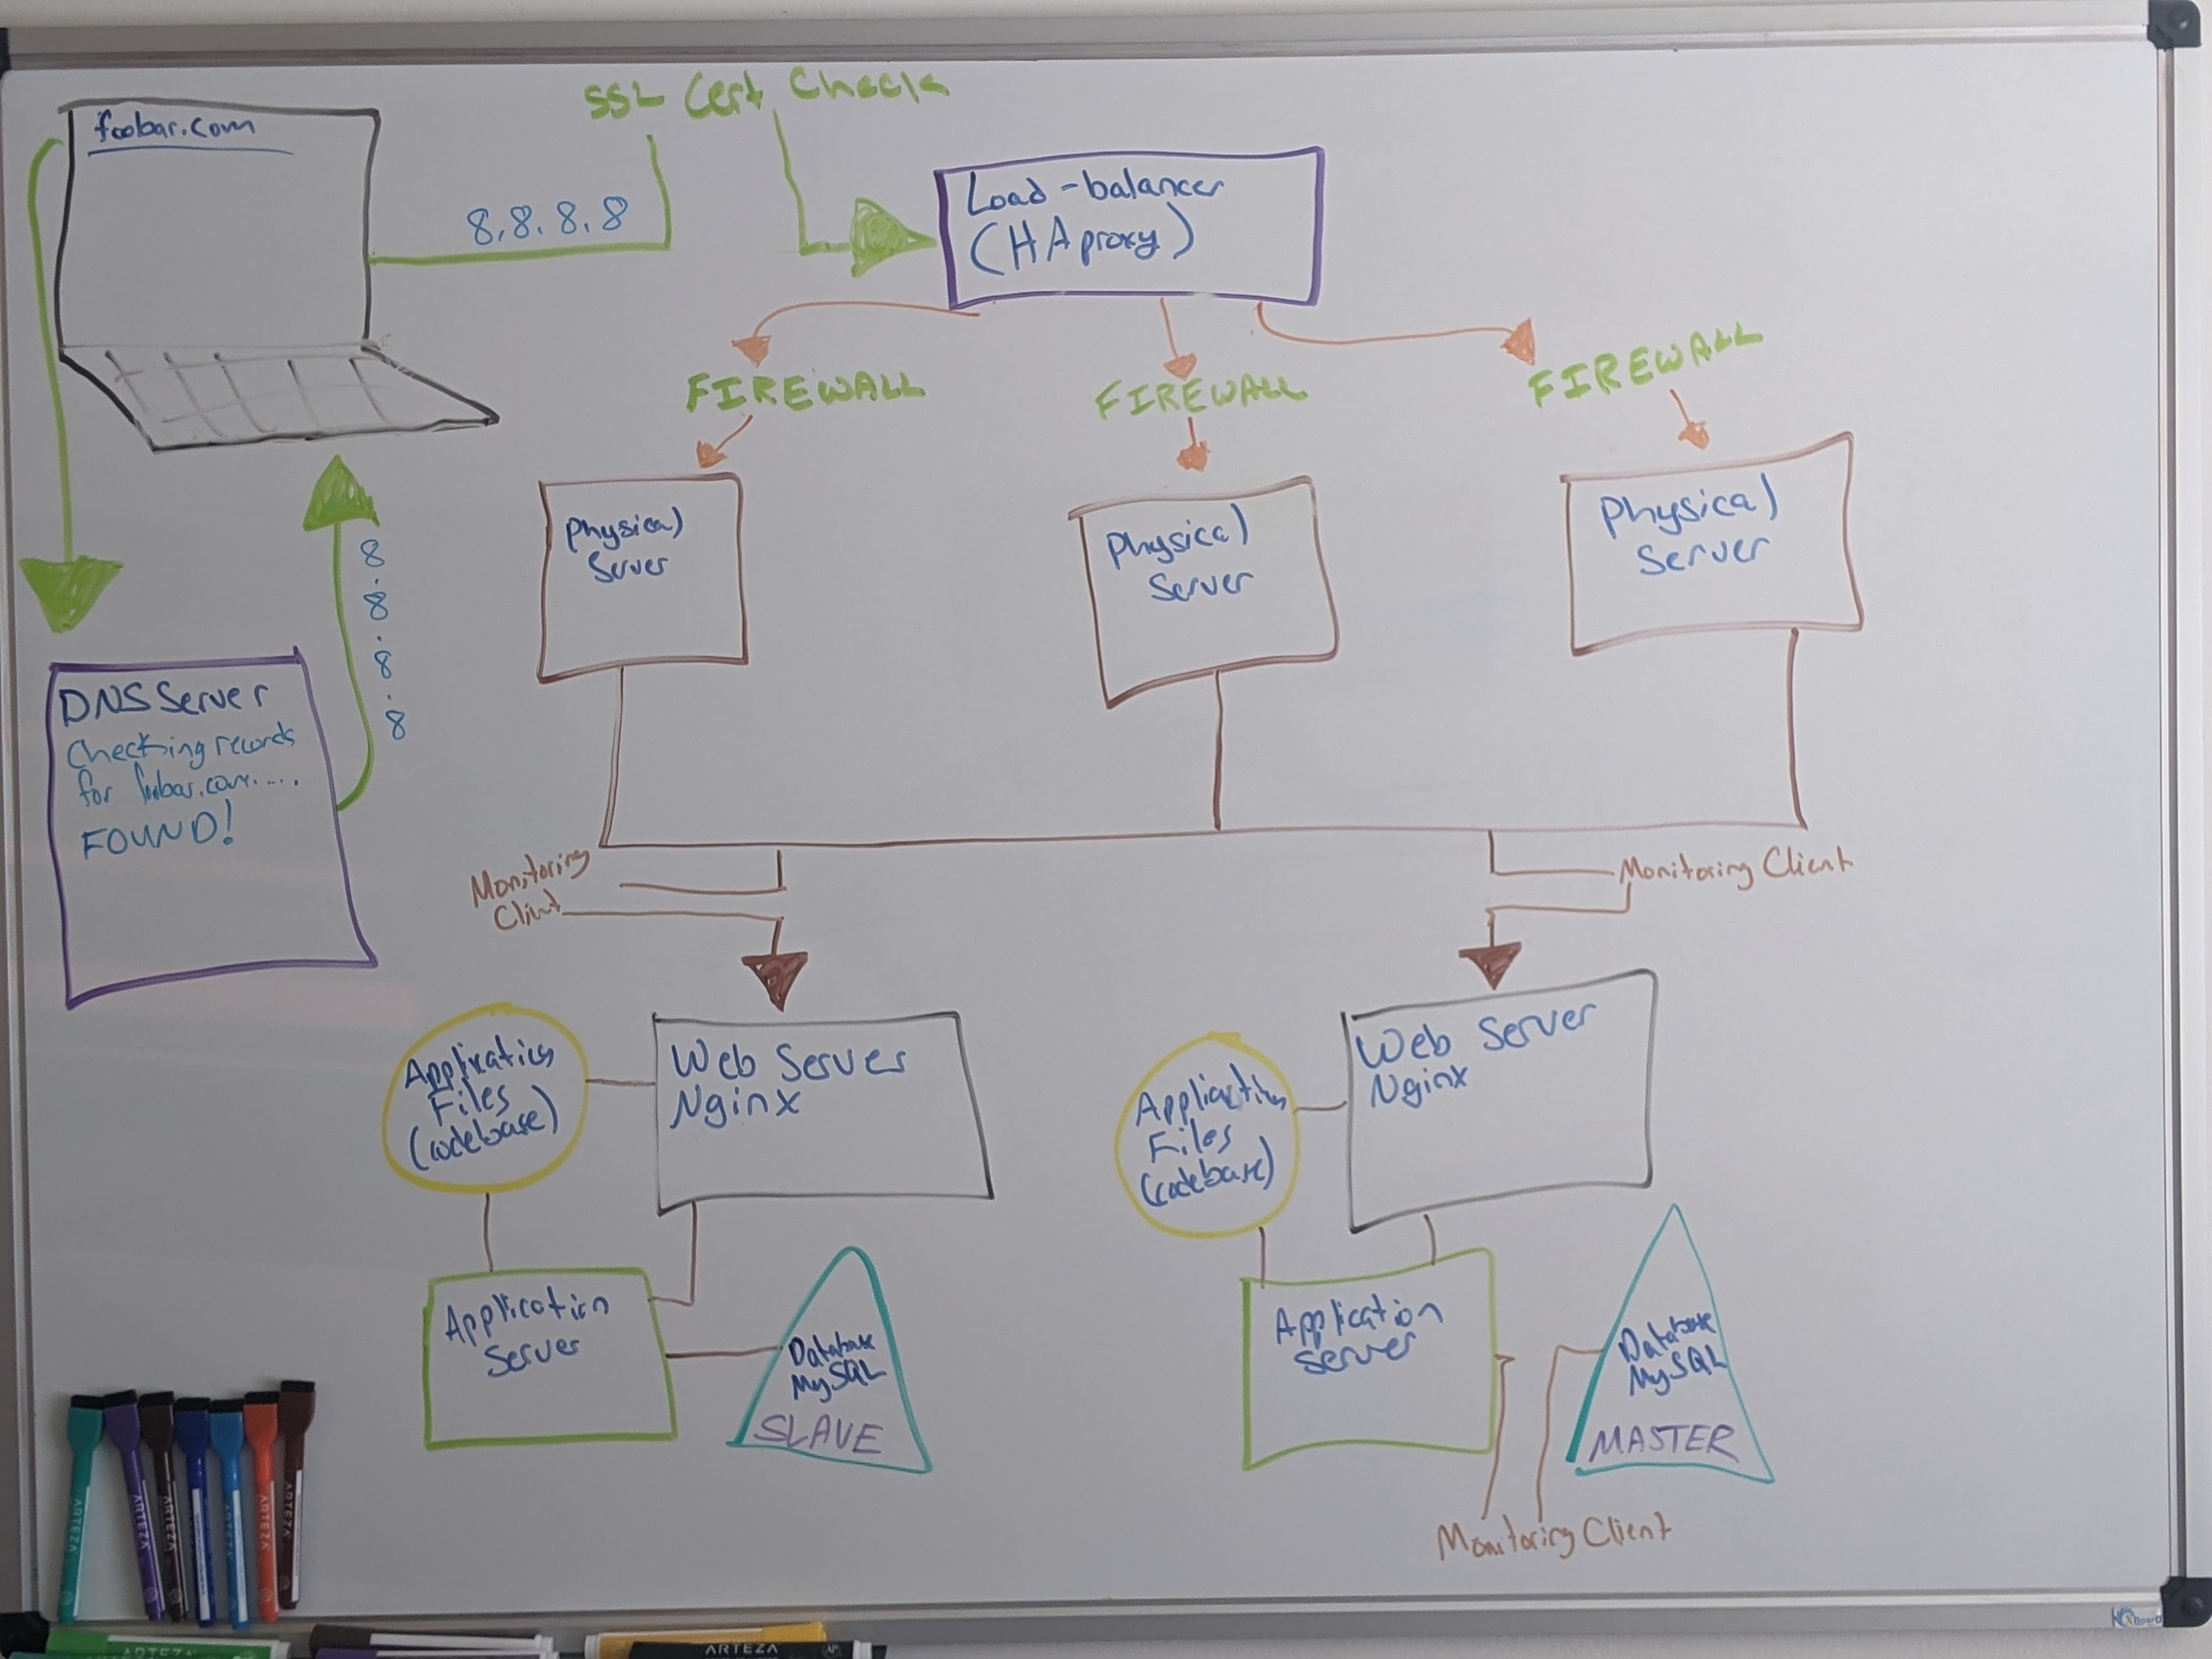 SSL Cert Check
foobar.com
8.8.8.8
Load-balancer
(HAproxy)
FIREWALL
FIREWALL
FIREWALL
Physical
Server
Physical
Server
Physical
Server
8.8.8.8
DNS Server
Checking records
for foobar.com....
FOUND!
Monitoring
Client
Monitoring Client
Application
Files
(codebase)
Web Server
Nginx
Application
Files
(codebase)
Web Server
Nginx
Application
Server
Database
MySQL
SLAVE
Application
Server
Database
MySQL
MASTER
Monitoring Client
ARTEZA
ARTEZA
ARTEZA
ARTEZA
ARTEZA
ARTEZA
ARTEZA
ARTEZA
ARTEZA